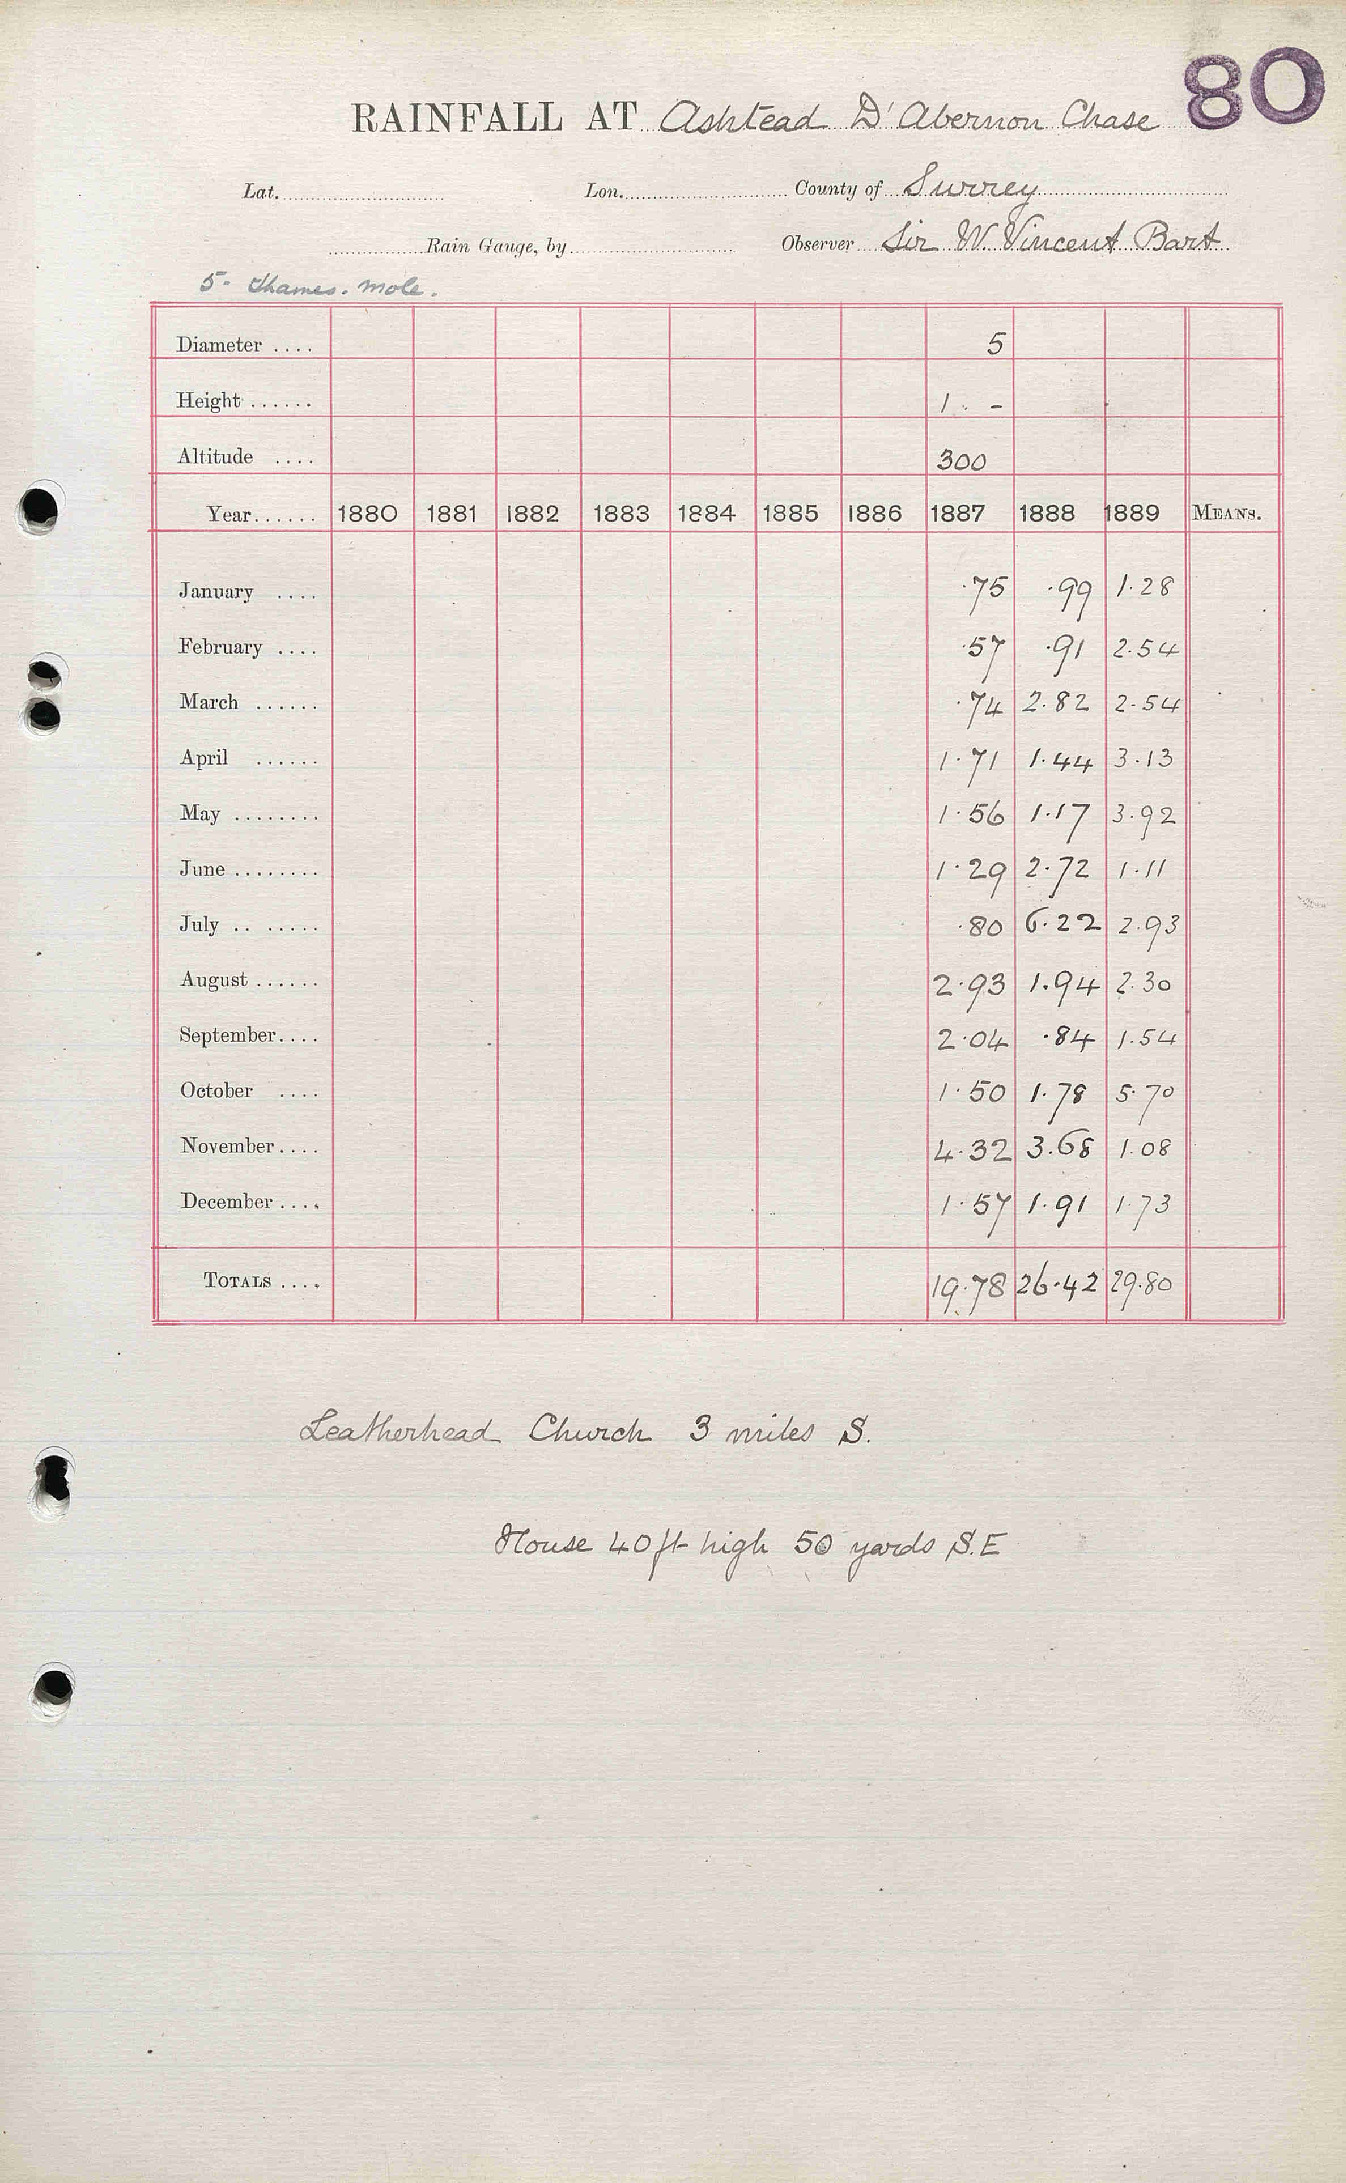 80
RAINFALL AT Ashtead D'Abernon Chase
Lat. Lon. County of Surrey
Rain Gauge, by Observer Sir W. Vincent Bart
5- Thames. Mole.
Diameter .... 5
Height ...... 1 . -
Altitude .... 300
Year...... 1880 1881 1882 1883 1884 1885 1886 1887 1888 1889 MEANS.
January .... ·75 ·99 1·28
February .... ·57 ·91 2·54
March ...... ·74 2·82 2·54
April ...... 1·71 1·44 3·13
May ........ 1·56 1·17 3·92
June ........ 1·29 2·72 1·11
July .. ..... ·80 6·22 2·93
August ...... 2·93 1·94 2·30
September.... 2·04 ·84 1·54
October .... 1·50 1·78 5·70
November.... 4·32 3·68 1·08
December.... 1·57 1·91 1·73
TOTALS .... 19·78 26·42 29·80
Leatherhead Church 3 miles S.
House 40 ft high 50 yards S.E